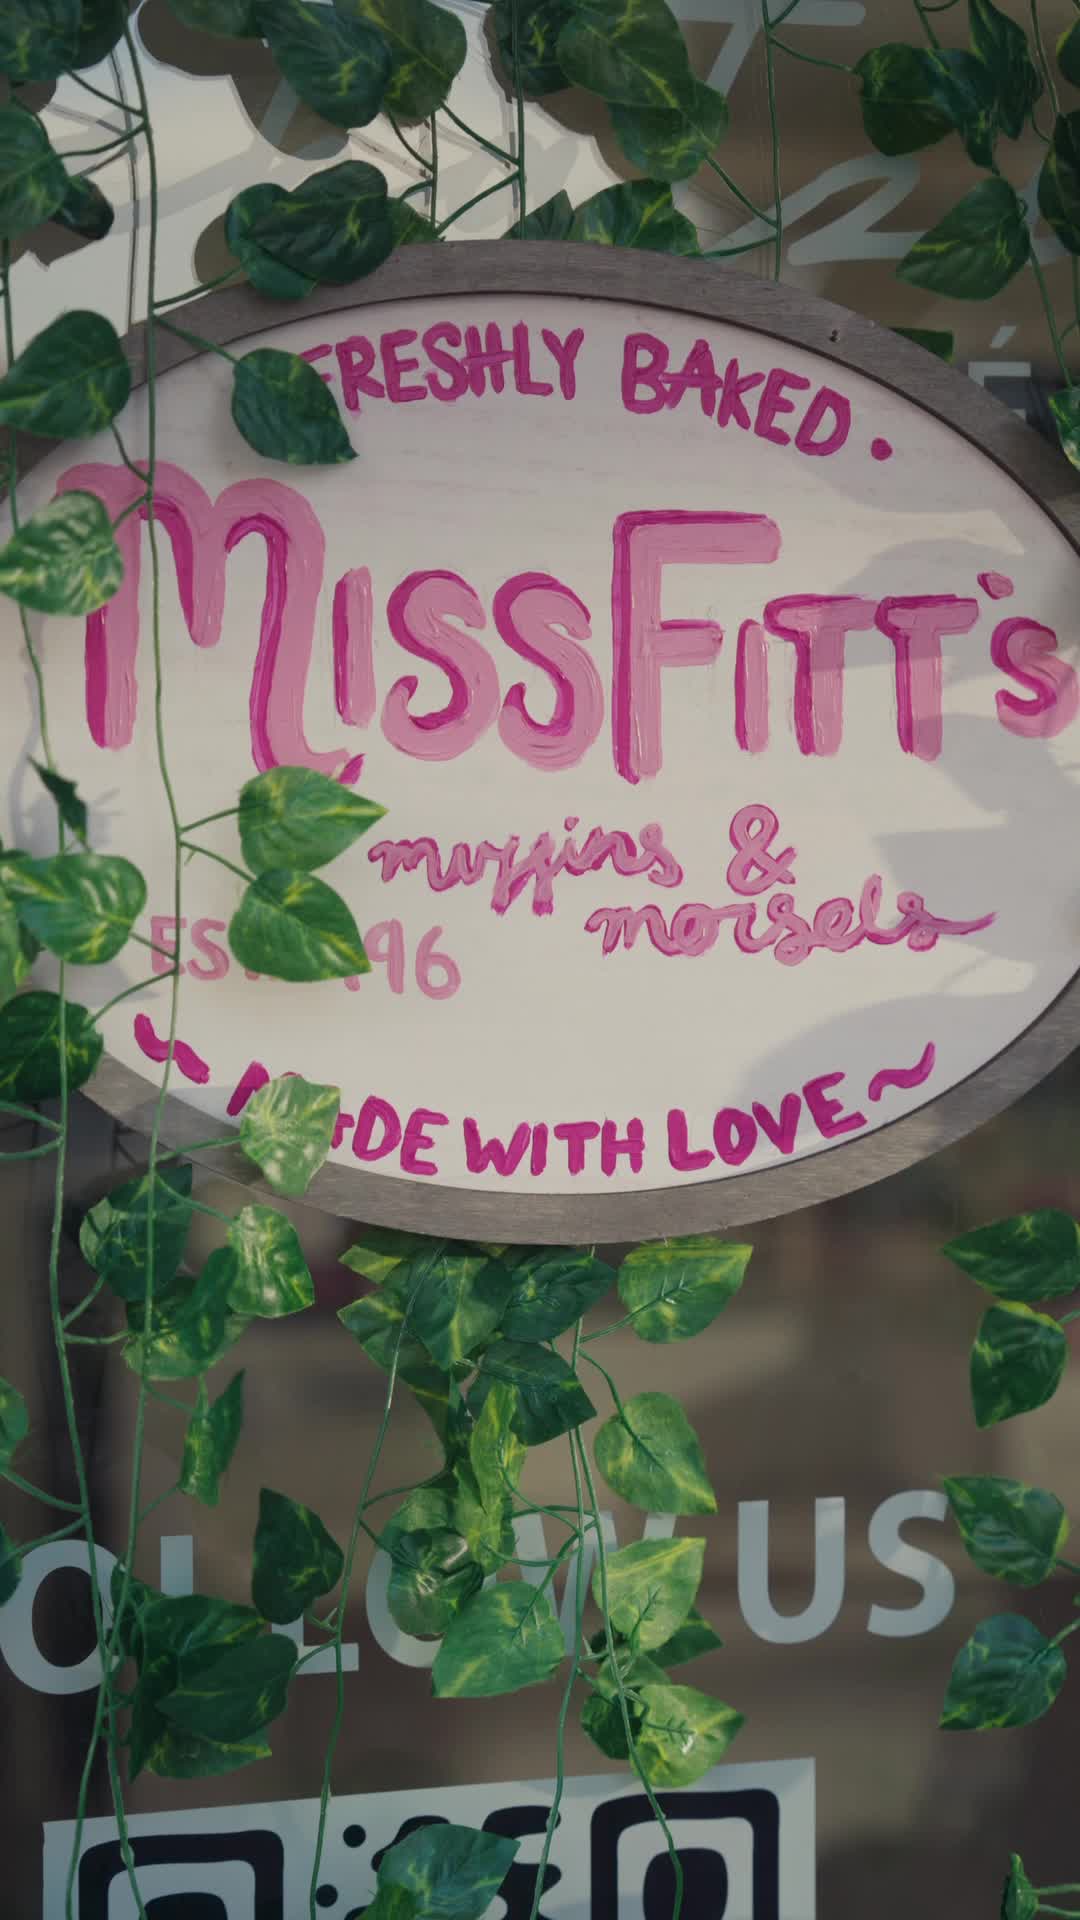 FRESHLY BAKED •
MISSFITT'S
muffins &
morsels
~ MADE WITH LOVE ~
FOLLOW US